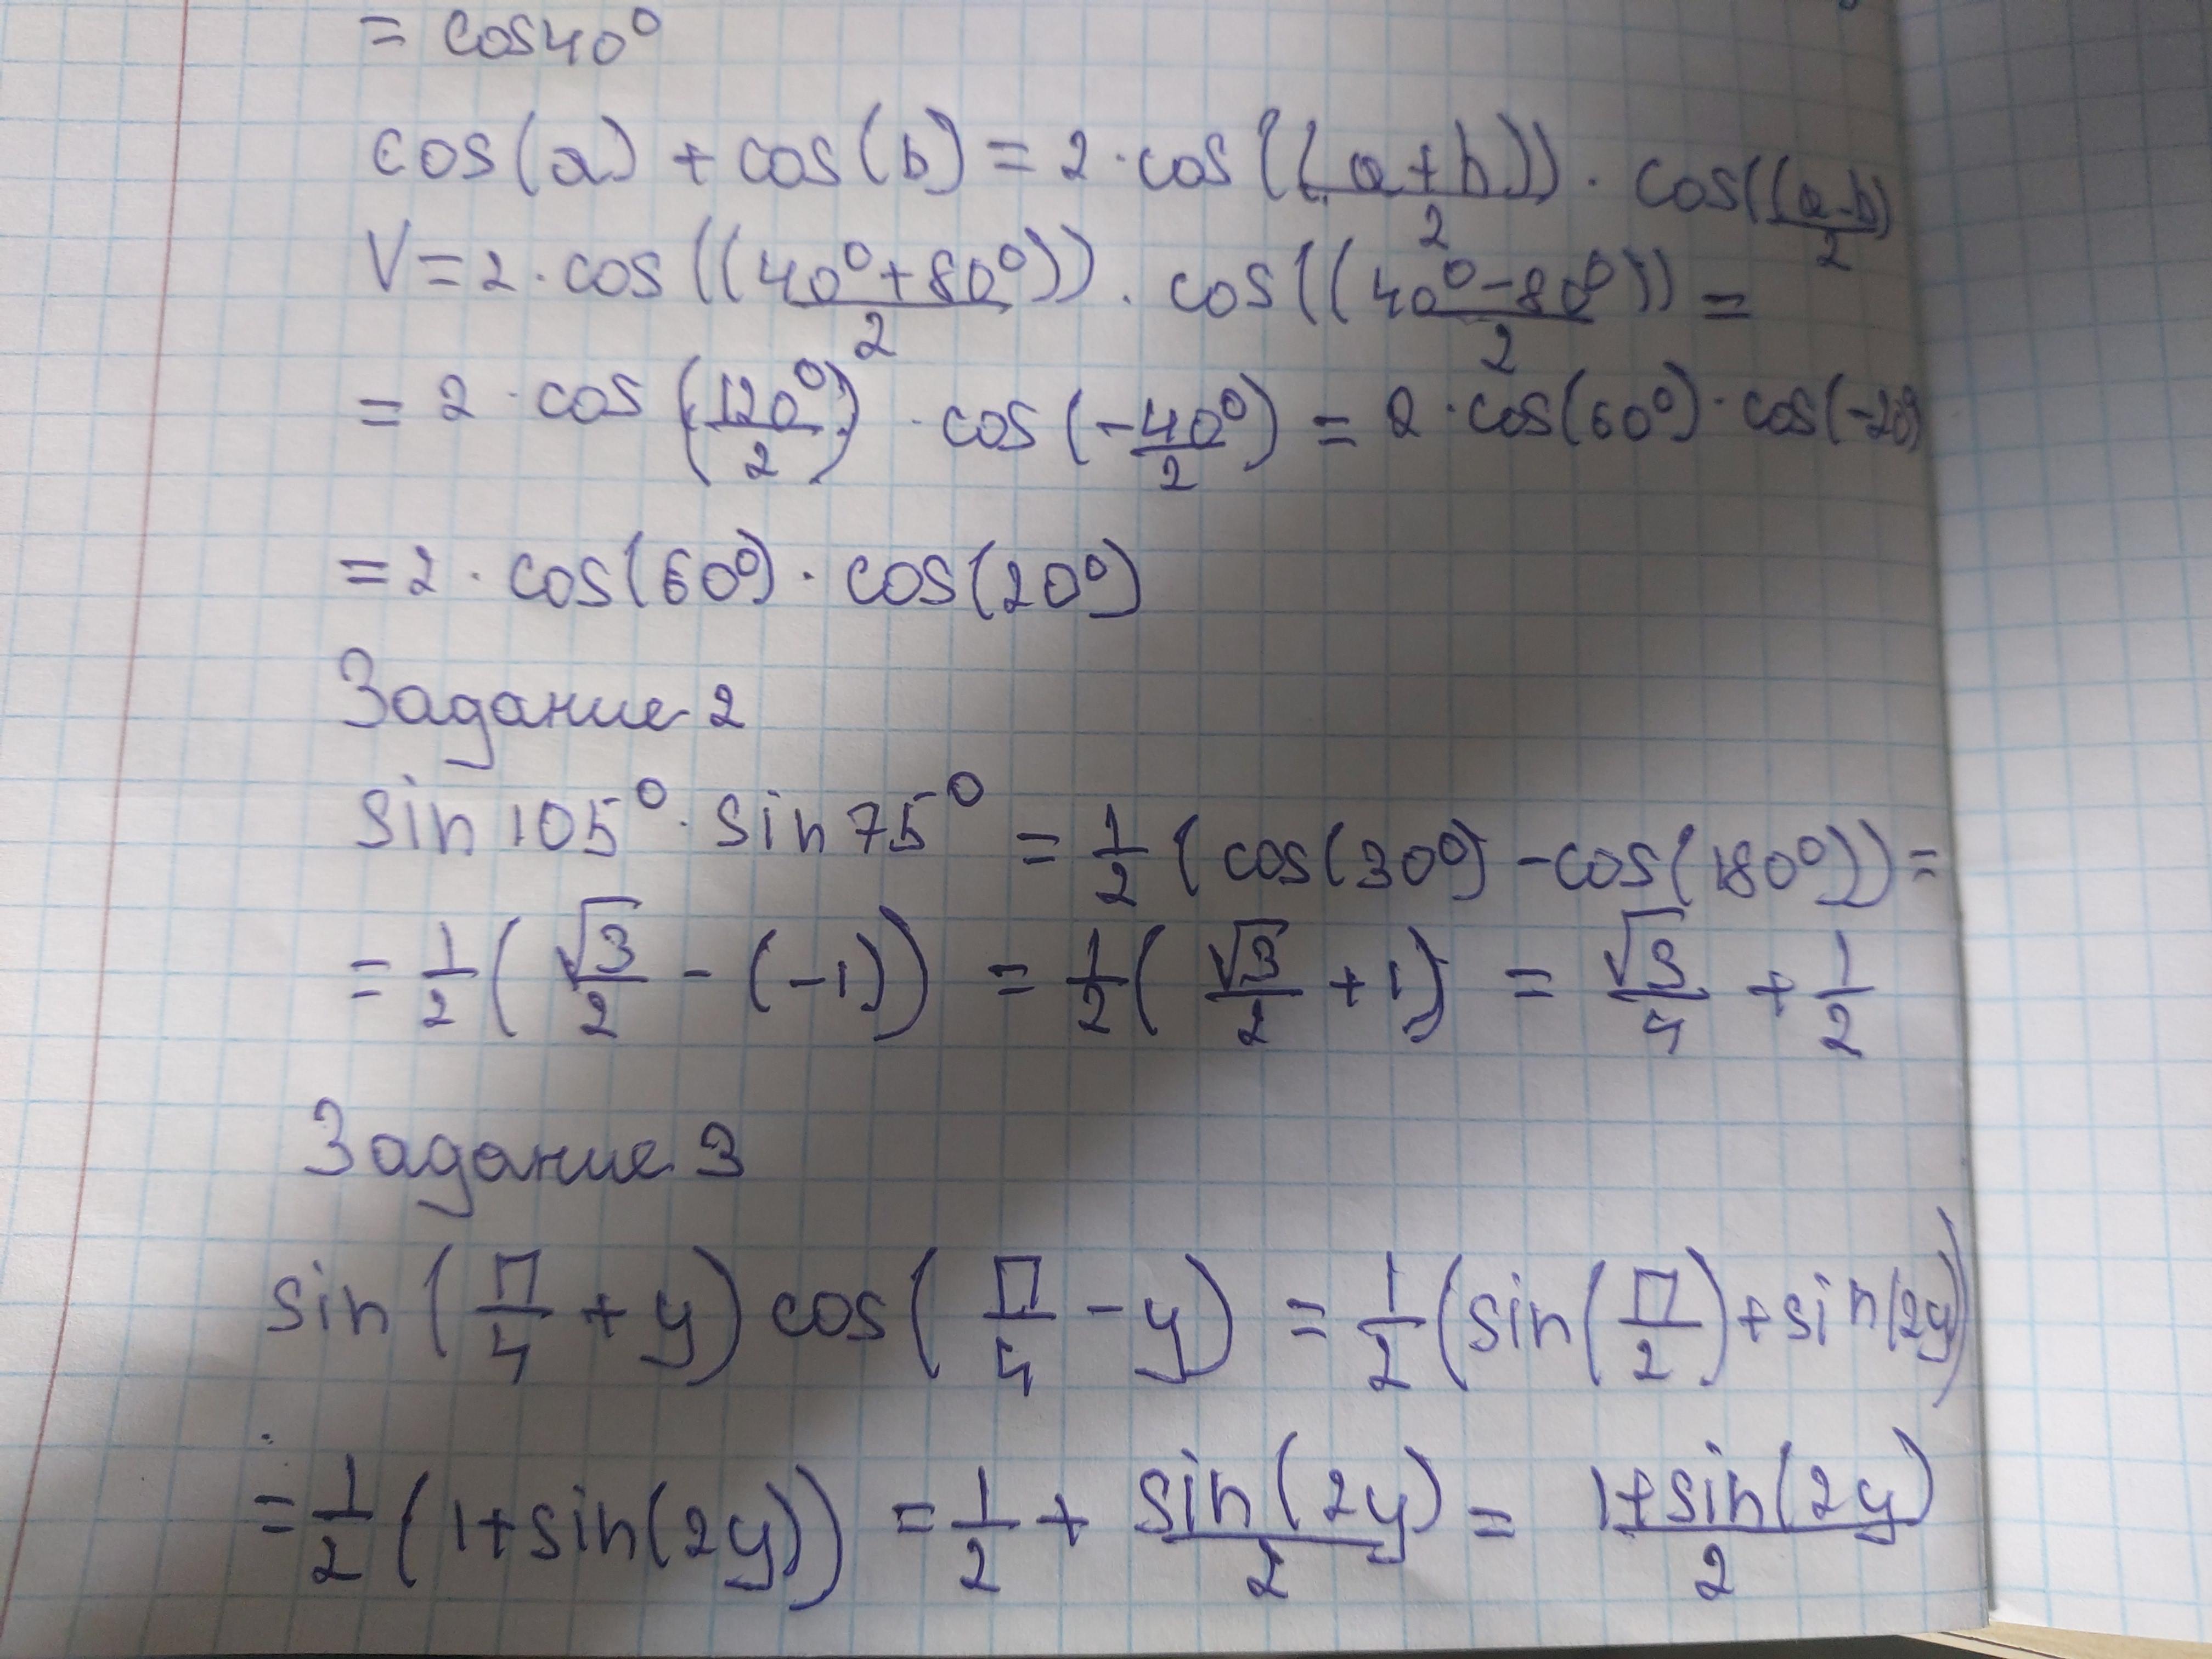 = cos40°
cos(a) + cos(b) = 2 · cos((a+b)/2) · cos((a-b)/2)
V = 2 · cos((40°+80°)/2) · cos((40°-80°)/2) =
= 2 · cos(120°/2) · cos(-40°/2) = 2 · cos(60°) · cos(-20°)
= 2 · cos(60°) · cos(20°)
Задание 2
sin 105° · sin 75° = 1/2 (cos(30°) - cos(180°)) =
= 1/2 (√3/2 - (-1)) = 1/2 (√3/2 + 1) = √3/4 + 1/2
Задание 3
sin(П/4 + y) cos(П/4 - y) = 1/2 (sin(П/2) + sin(2y))
= 1/2 (1+sin(2y)) = 1/2 + sin(2y)/2 = 1+sin(2y)/2